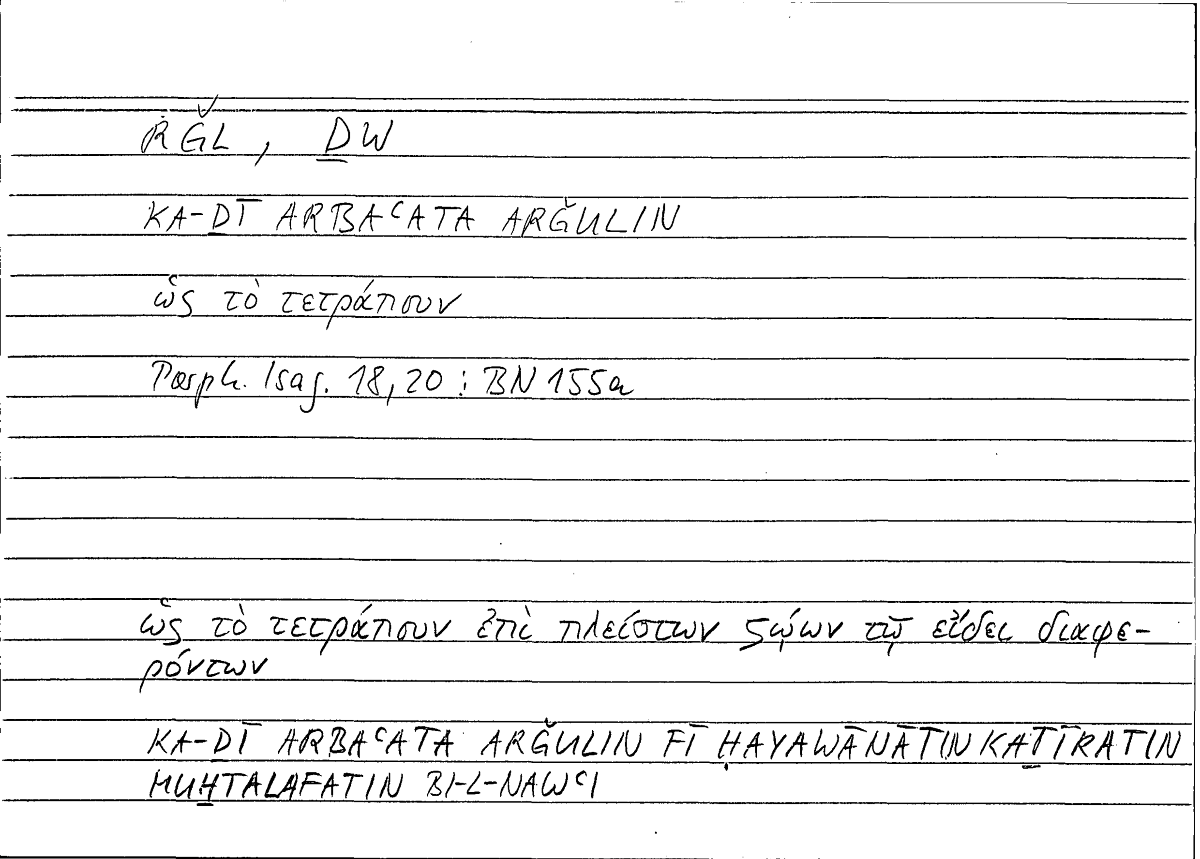 RǦL, ḎW
KA-ḎĪ ARBAʿATA ARǦULIN
ὡς τὸ τετράπουν
Porph. Isag. 18,20 : BN 155a
ὡς τὸ τετράπουν ἐπὶ πλείστων ζῴων τῷ εἴδει διαφε-
ρόντων
KA-ḎĪ ARBAʿATA ARǦULIN FĪ ḤAYAWĀNĀTIN KAṮĪRATIN
MUẖTALAFATIN BI-L-NAWʿI